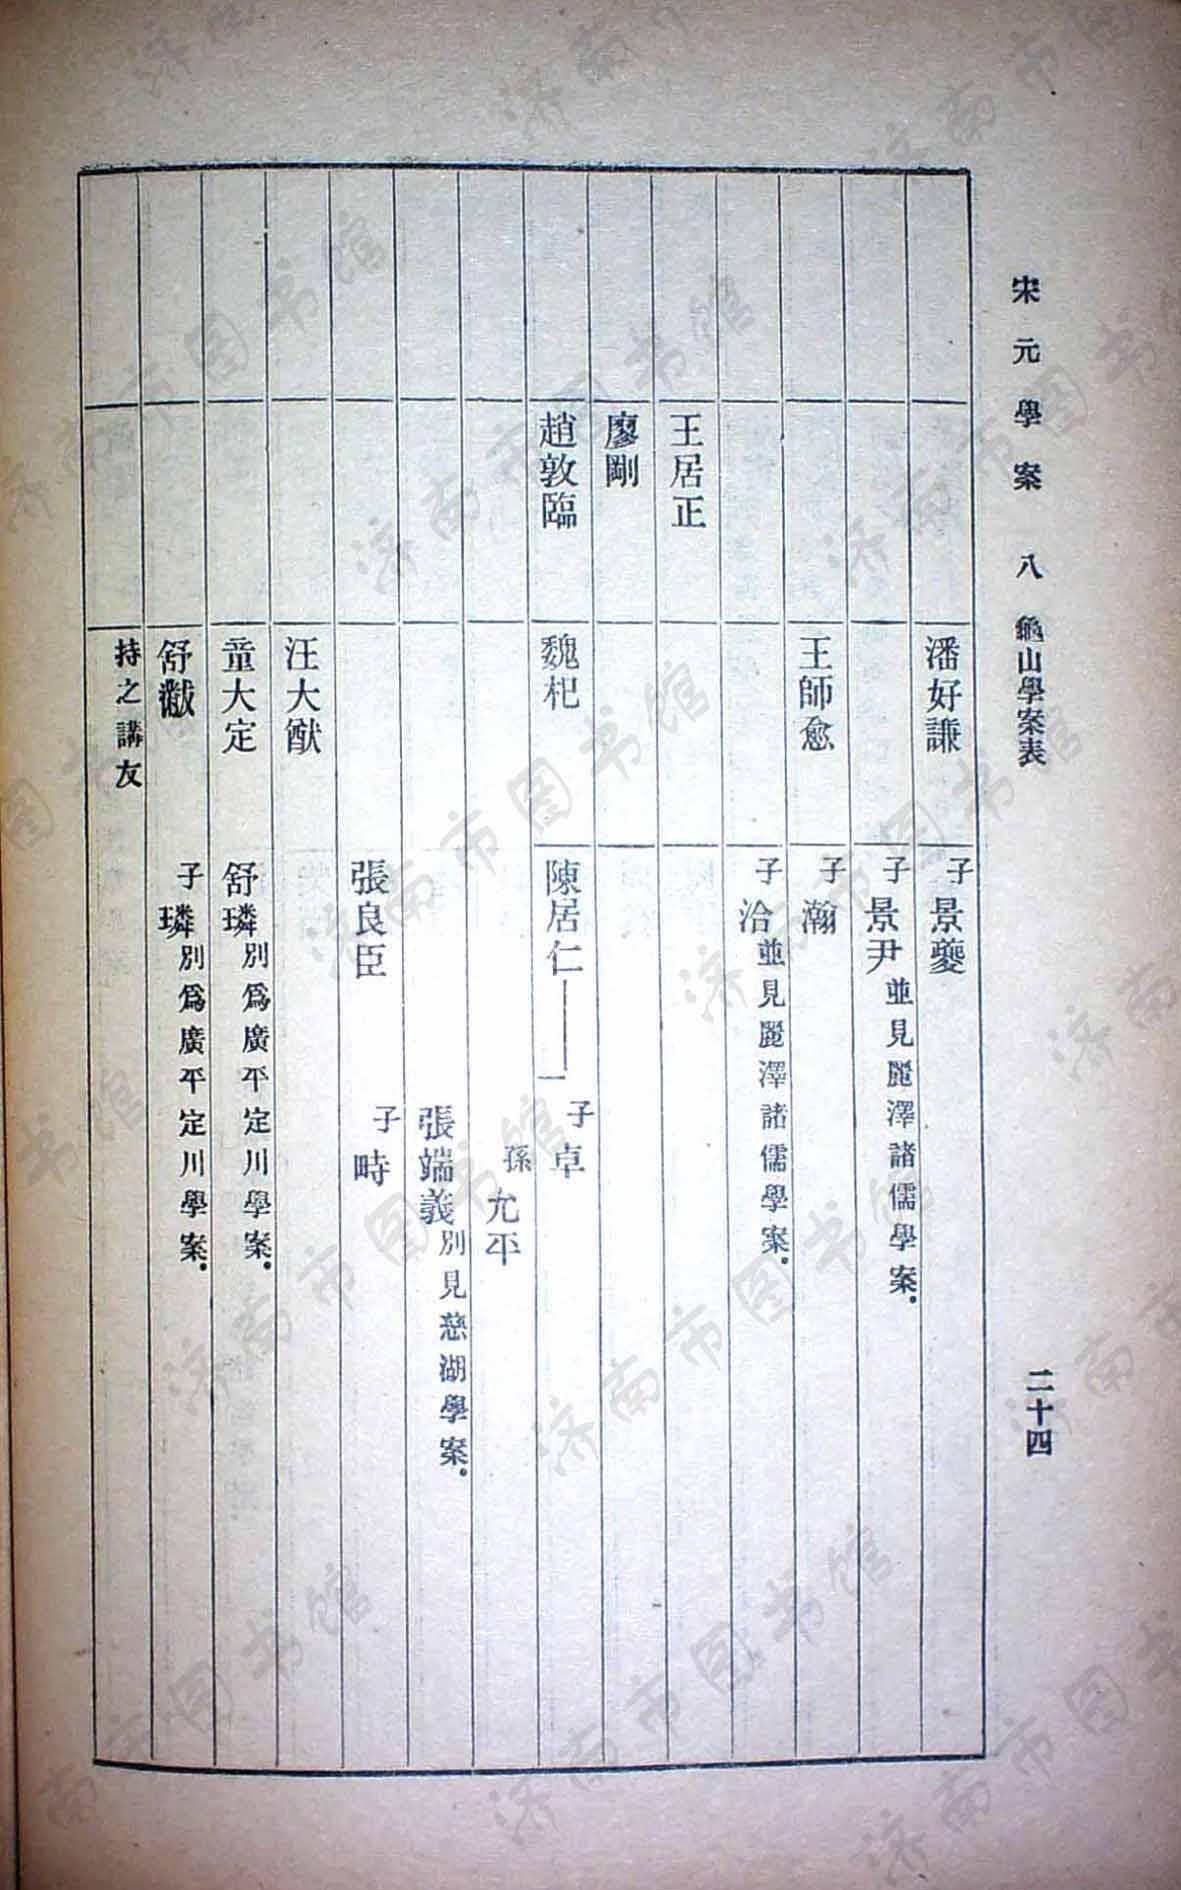 宋元學案 八 龜山學案表 二十四
潘好謙 子景夔
子景尹 並見麗澤諸儒學案.
王師愈 子瀚
子洽 並見麗澤諸儒學案.
王居正
廖剛
趙敦臨 魏杞 陳居仁 子卓
孫允平
張端義 別見慈湖學案.
張良臣 子時
汪大猷
童大定 舒璘 別爲廣平定川學案.
舒黻 子璘 別爲廣平定川學案.
持之講友
济南市图书馆